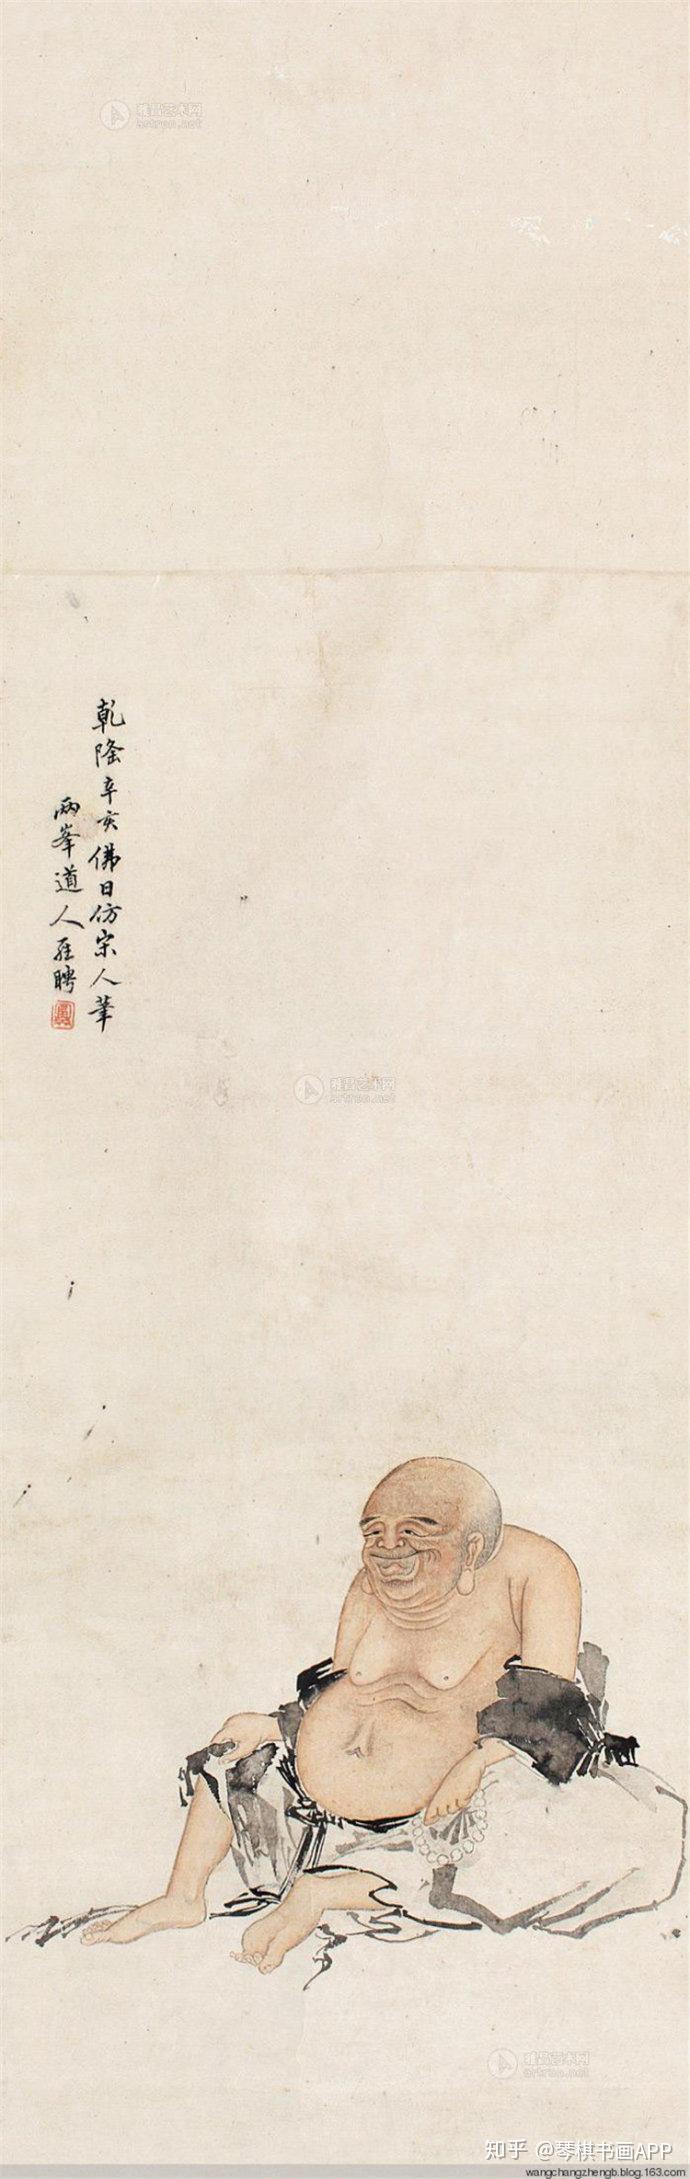 雅昌艺术网
artron.net
乾隆辛亥佛日仿宋人筆
兩峯道人羅聘
雅昌艺术网
artron.net
雅昌艺术网
artron.net
知乎 @琴棋书画APP
wangchangzhengb.blog.163.com